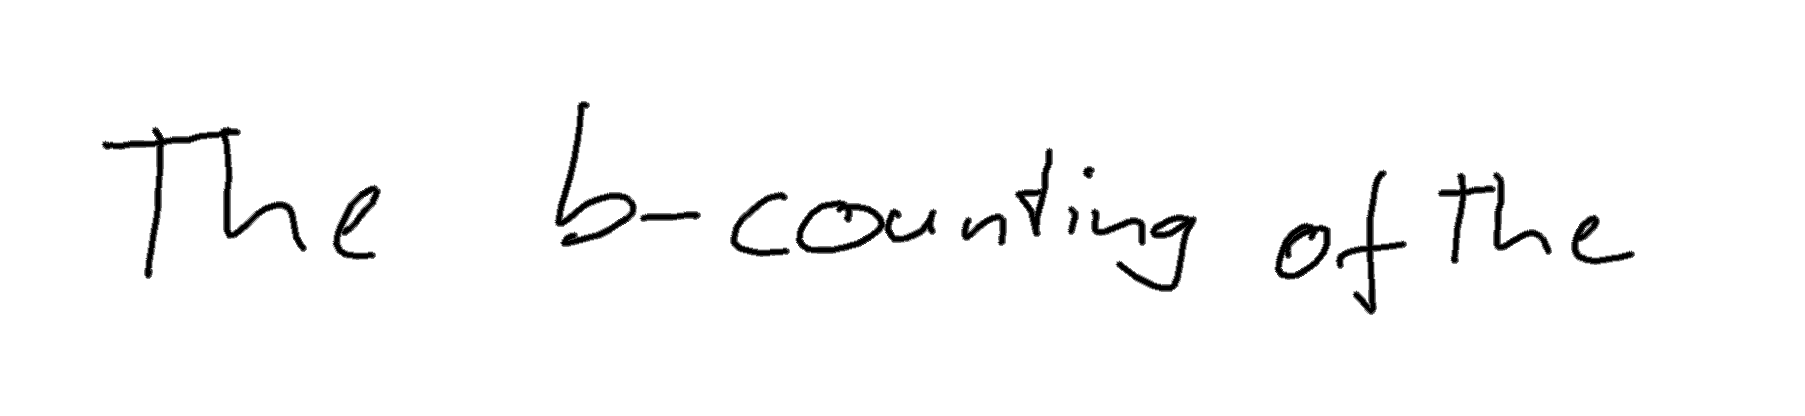 The b-counting of the